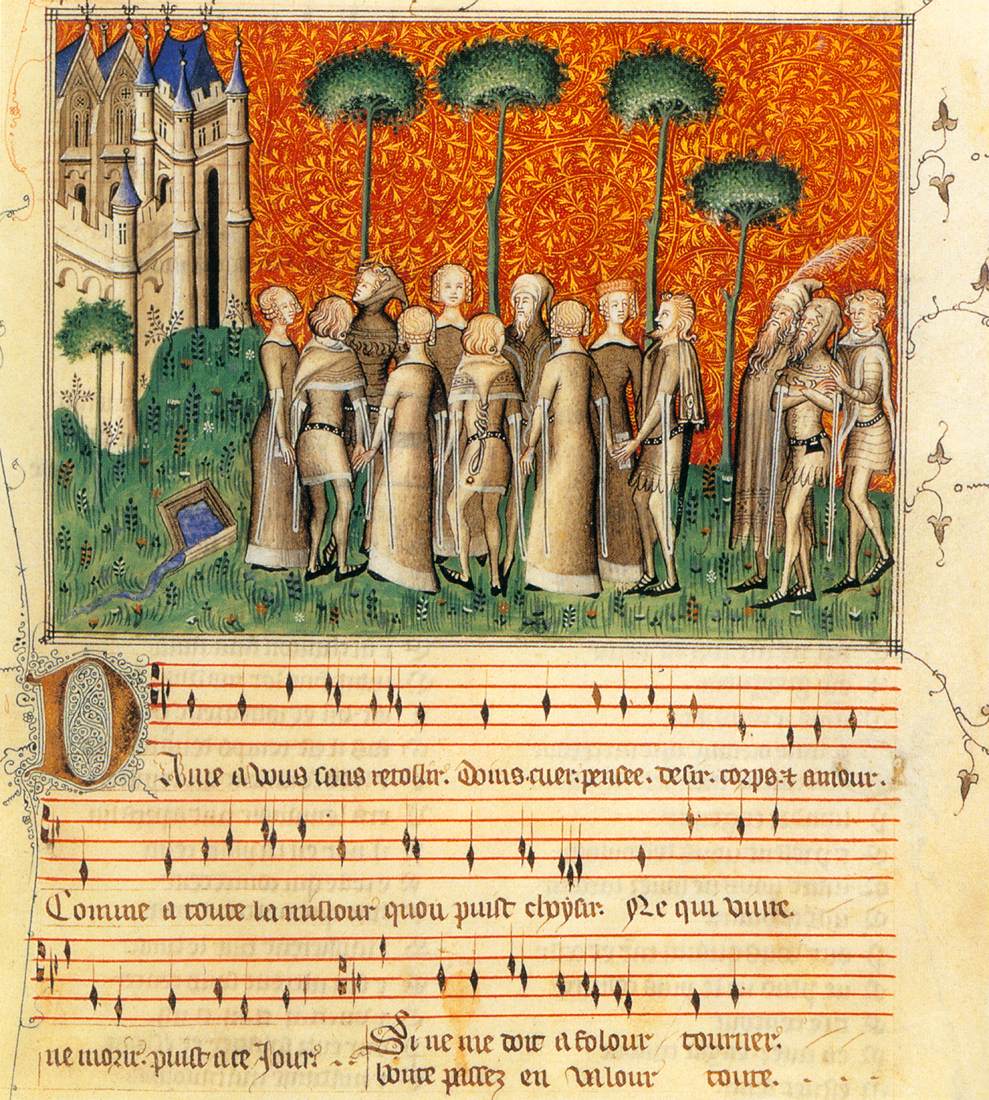 Dame a vous sans retollir. Doins. cuer. pensee. desir. corps. & amour.
Comme a toute la millour quon puist choysir. Ne qui viure.
ne morir. puist a ce Jour.
Si ne me doit a folour tourner.
bonte passez en valour toute.